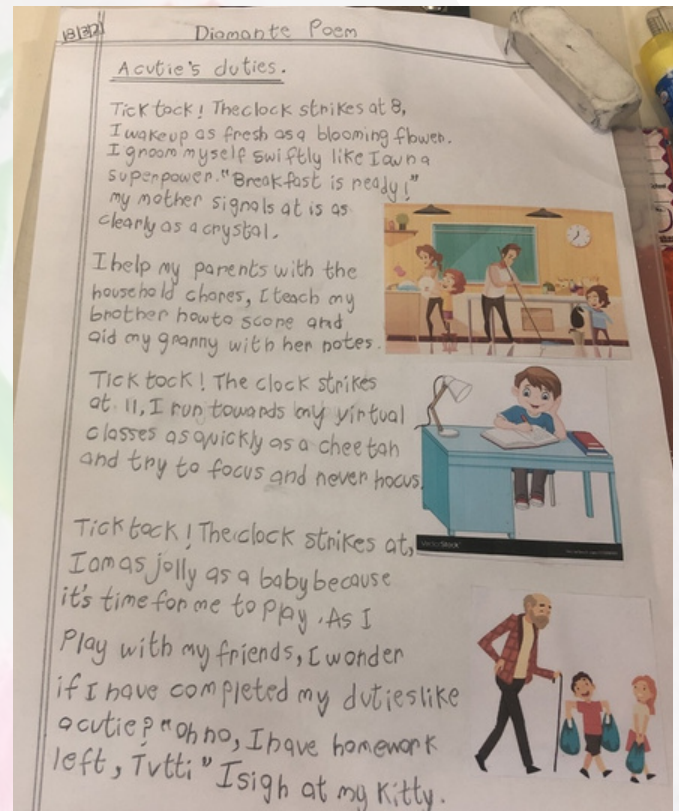 18/3/21
Diamante Poem
A cutie's duties.
Tick tock! The clock strikes at 8,
I wake up as fresh as a blooming flower.
I groom myself swiftly like I own a
superpower. "Breakfast is ready!"
my mother signals at is as
clearly as a crystal.
I help my parents with the
household chores, I teach my
brother how to score and
aid my granny with her notes.
Tick tock! The clock strikes
at 11, I run towards my virtual
classes as quickly as a cheetah
and try to focus and never hocus.
Tick tock! The clock strikes at,
I am as jolly as a baby because
it's time for me to play. As I
Play with my friends, I wonder
if I have completed my duties like
a cutie? "Oh no, I have homework
left, Tutti" I sigh at my Kitty.
VectorStock